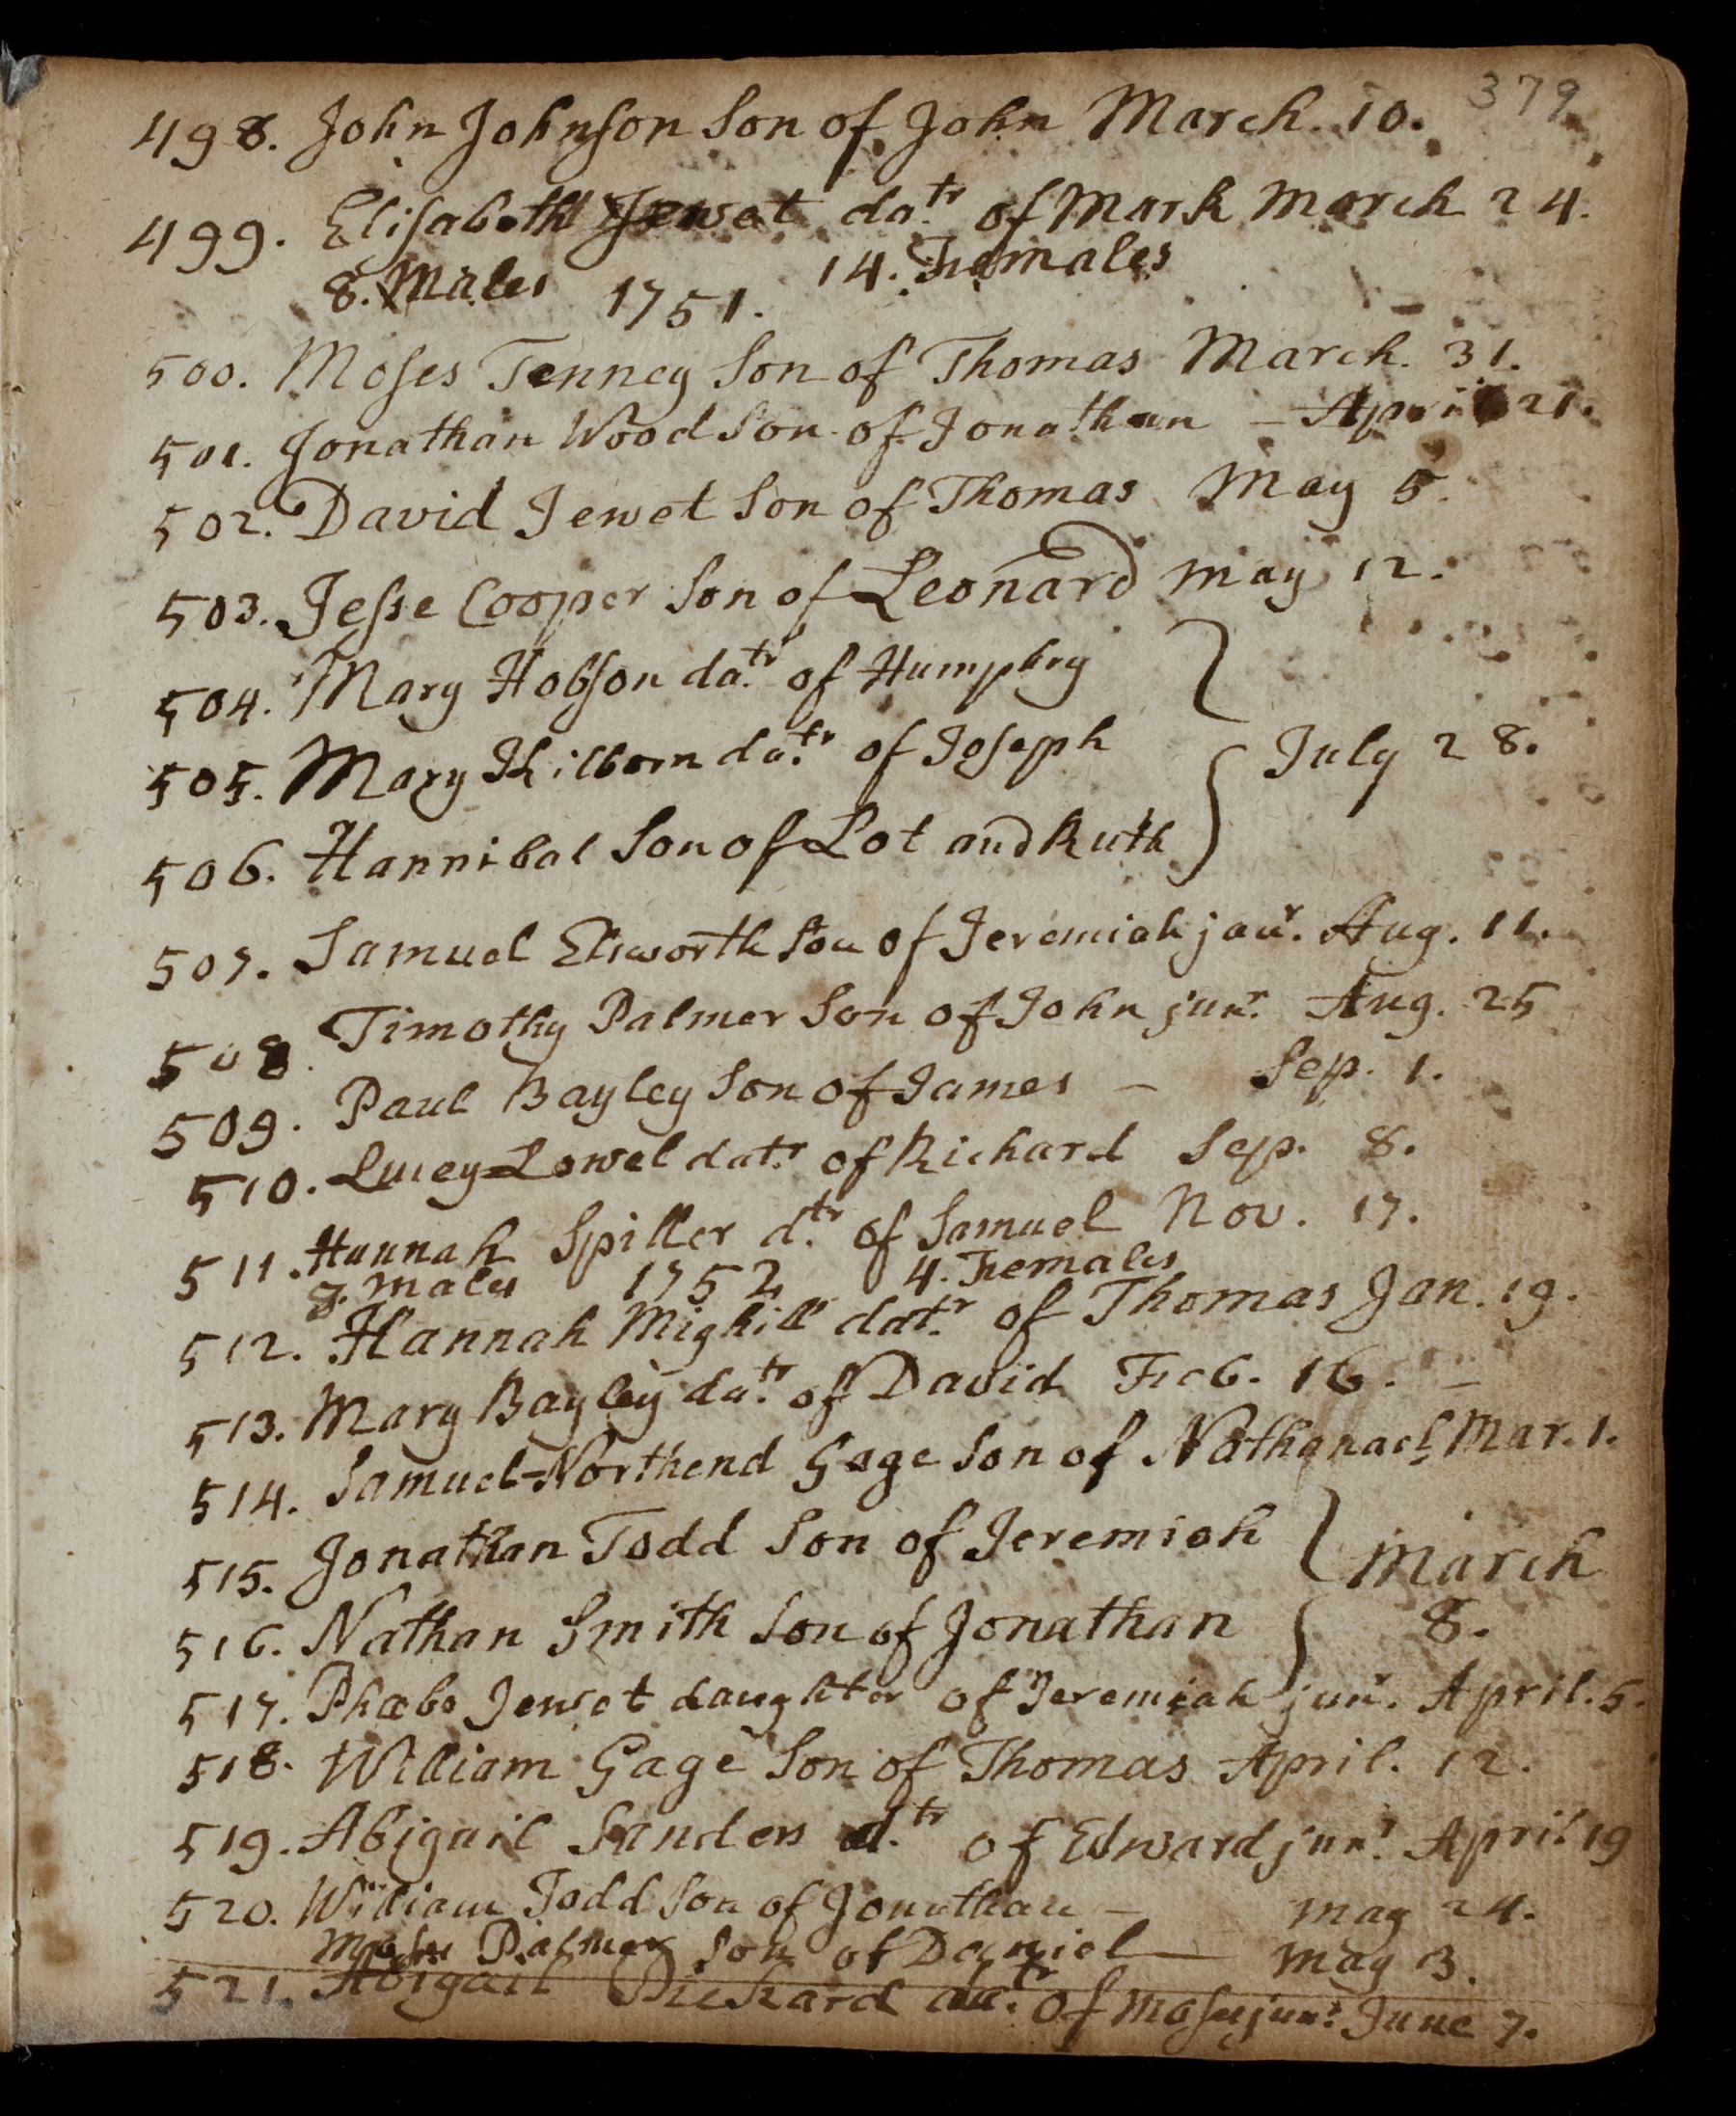 379
498. John Johnson Son of John March. 10.
499. Elisabeth Jewet datr. of Mark March 24.
8. Males 1751. 14. Females
500. Moses Tenney Son of Thomas March. 31.
501. Jonathan Wood Son of Jonathan — April 21.
502. David Jewet Son of Thomas May 5.
503. Jesse Cooper Son of Leonard May 12.
504. Mary Hobson datr. of Humphry
505. Mary Kilborn datr. of Joseph } July 28.
506. Hannibal Son of Lot and Ruth
507. Samuel Elsworth Son of Jeremiah junr. Aug. 11.
508. Timothy Palmer Son of John junr. Aug. 25
509. Paul Bayley Son of James — Sep. 1.
510. Lucy Lowel datr. of Richard Sep. 8.
511. Hannah Spiller dtr. of Samuel Nov. 17.
8. Males 1752 4. Females
512. Hannah Mighill datr. of Thomas Jan. 19.
513. Mary Bayley datr. of David Feb. 16. —
514. Samuel-Northend Gage Son of Nathanael, Mar. 1.
515. Jonathan Todd Son of Jeremiah } March
516. Nathan Smith Son of Jonathan 8.
517. Phœbe Jewet daughter of Jeremiah junr. April. 5.
518. William Gage Son of Thomas April. 12.
519. Abigail Sanders dtr. of Edward junr. April 19
520. William Todd Son of Jonathan — May 24.
Moses Palmer Son of Daniel — May 3.
521. Abigail Pickard datr. of Moses junr. June 7.